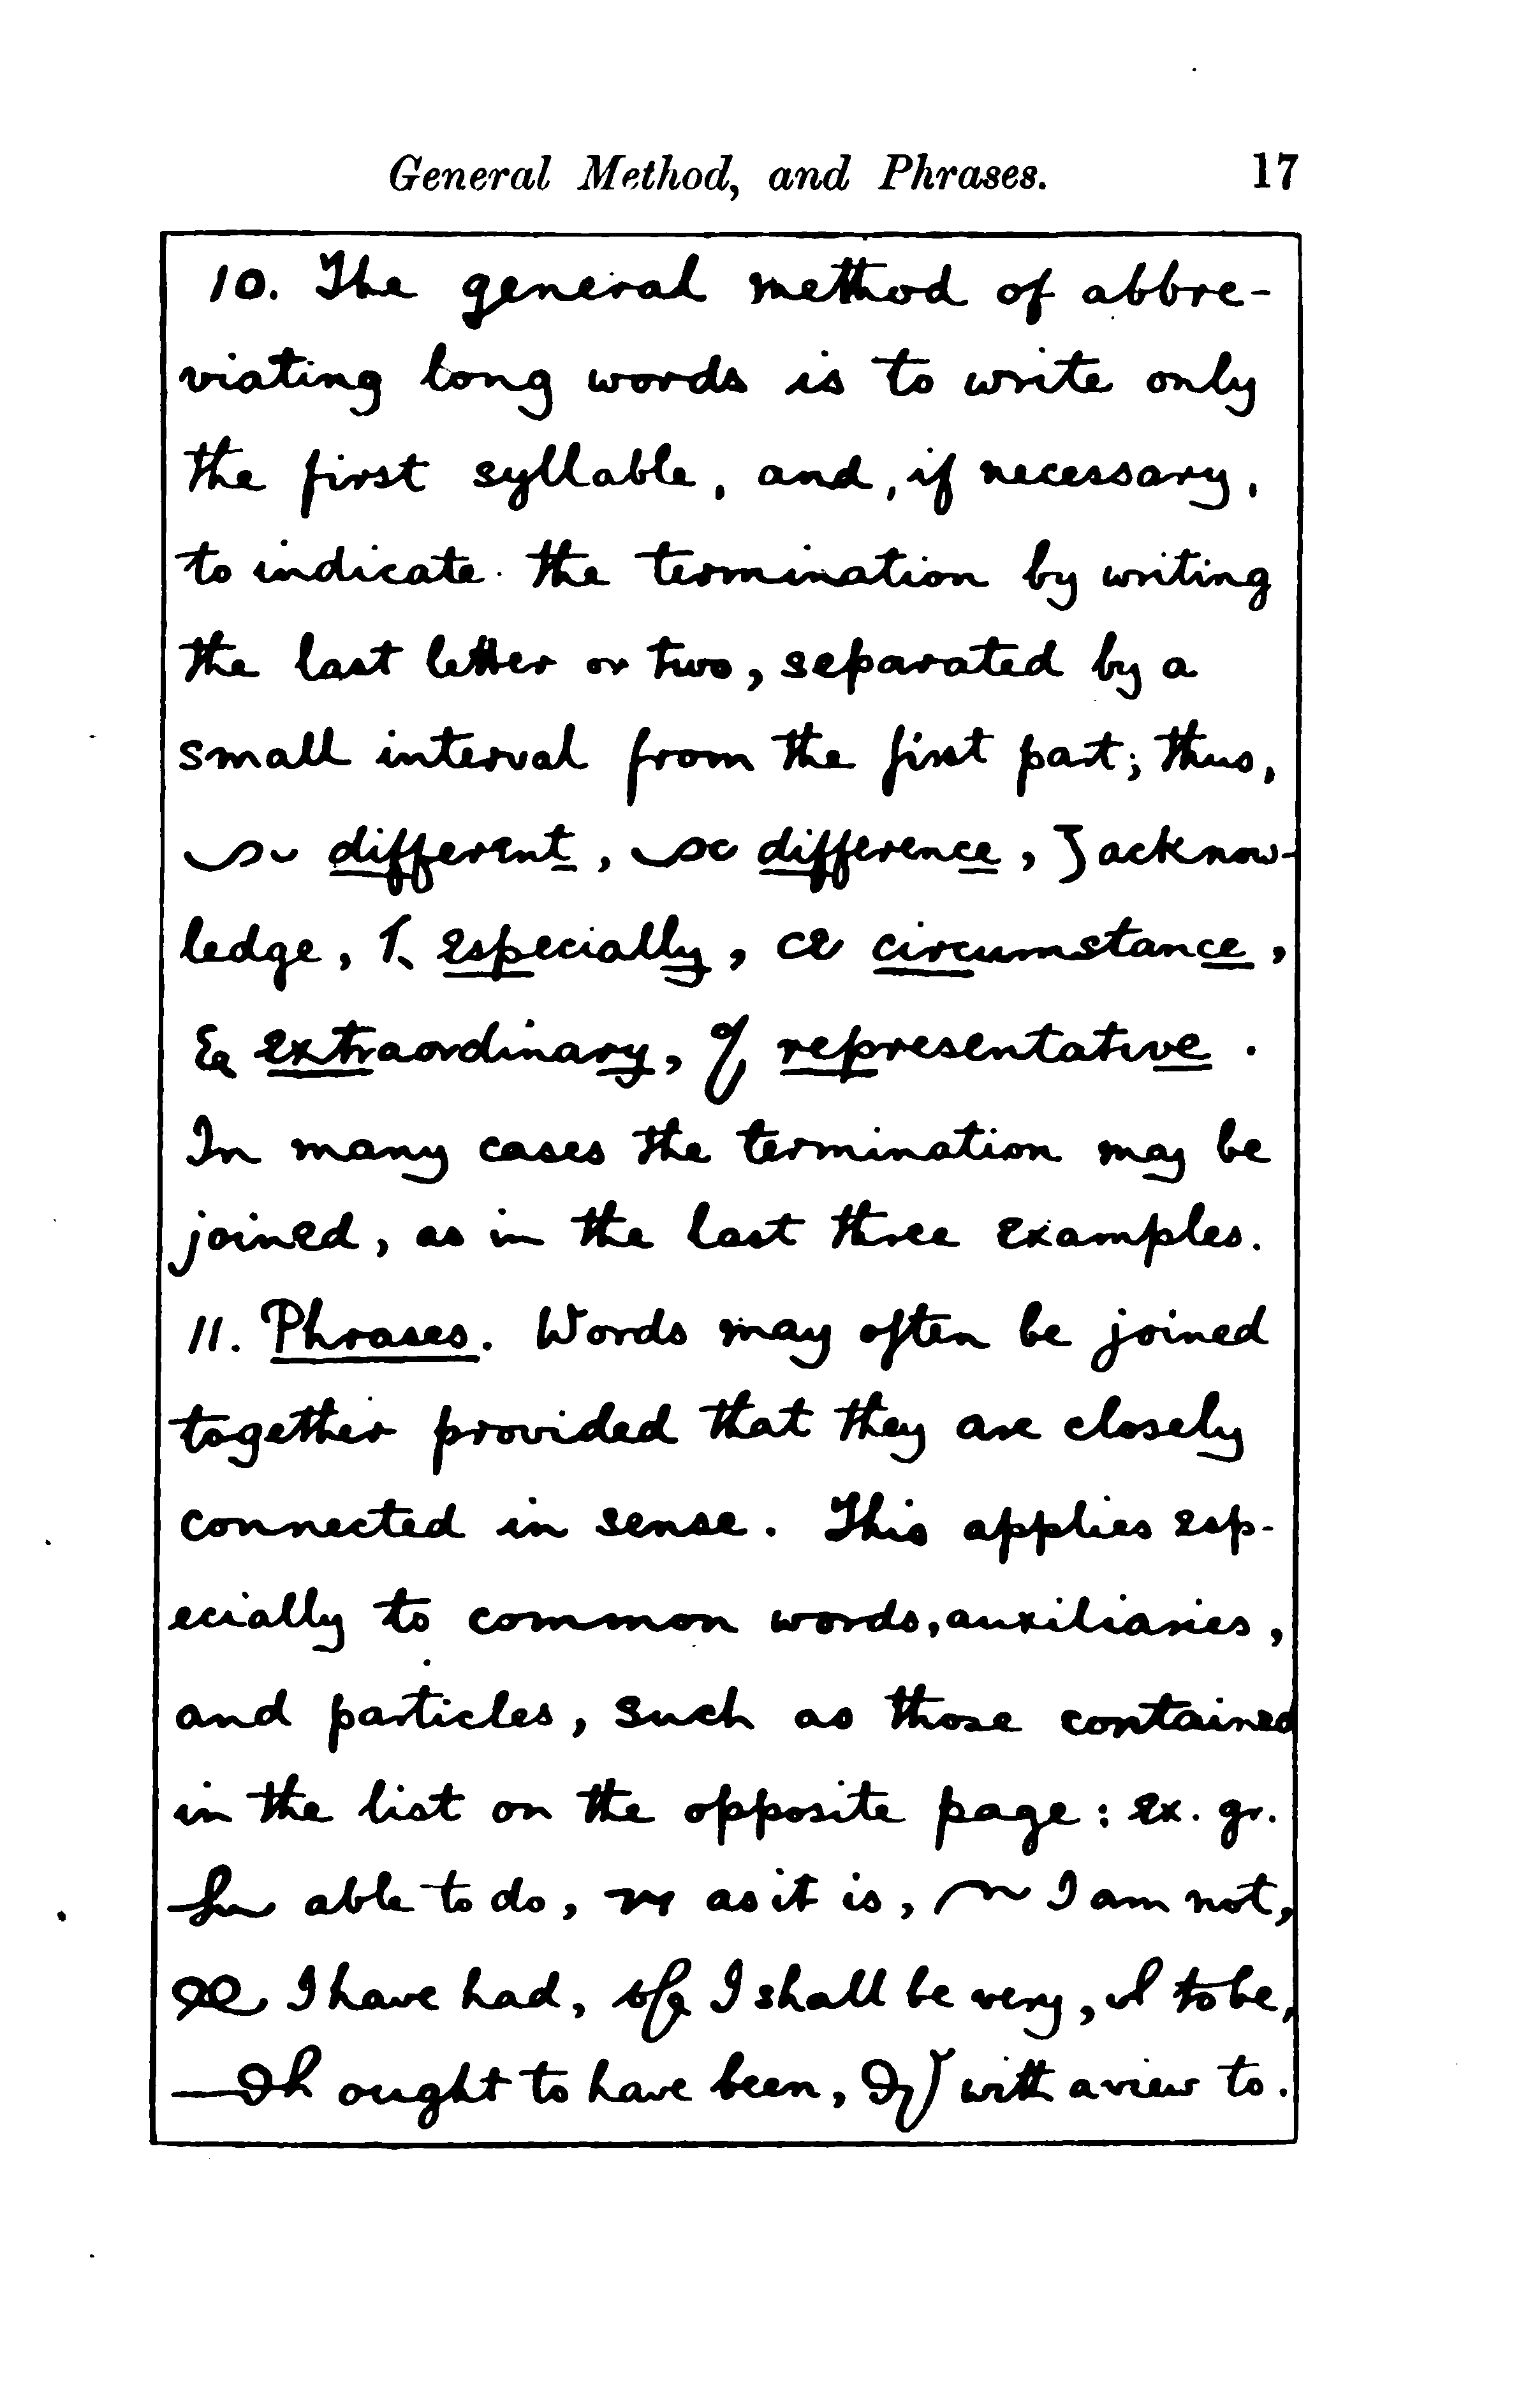 General Method, and Phrases. 17
10. The general method of abbre-
viating long words is to write only
the first syllable, and, if necessary,
to indicate the termination by writing
the last letter or two, separated by a
small interval from the first part; thus,
different, difference, acknow-
ledge, especially, circumstance,
extraordinary, representative.
In many cases the termination may be
joined, as in the last three examples.
11. Phrases. Words may often be joined
together provided that they are closely
connected in sense. This applies esp-
ecially to common words, auxiliaries,
and particles, such as those contained
in the list on the opposite page: ex. gr.
able to do, as it is, I am not,
I have had, I shall be very, to be,
ought to have been, with a view to.